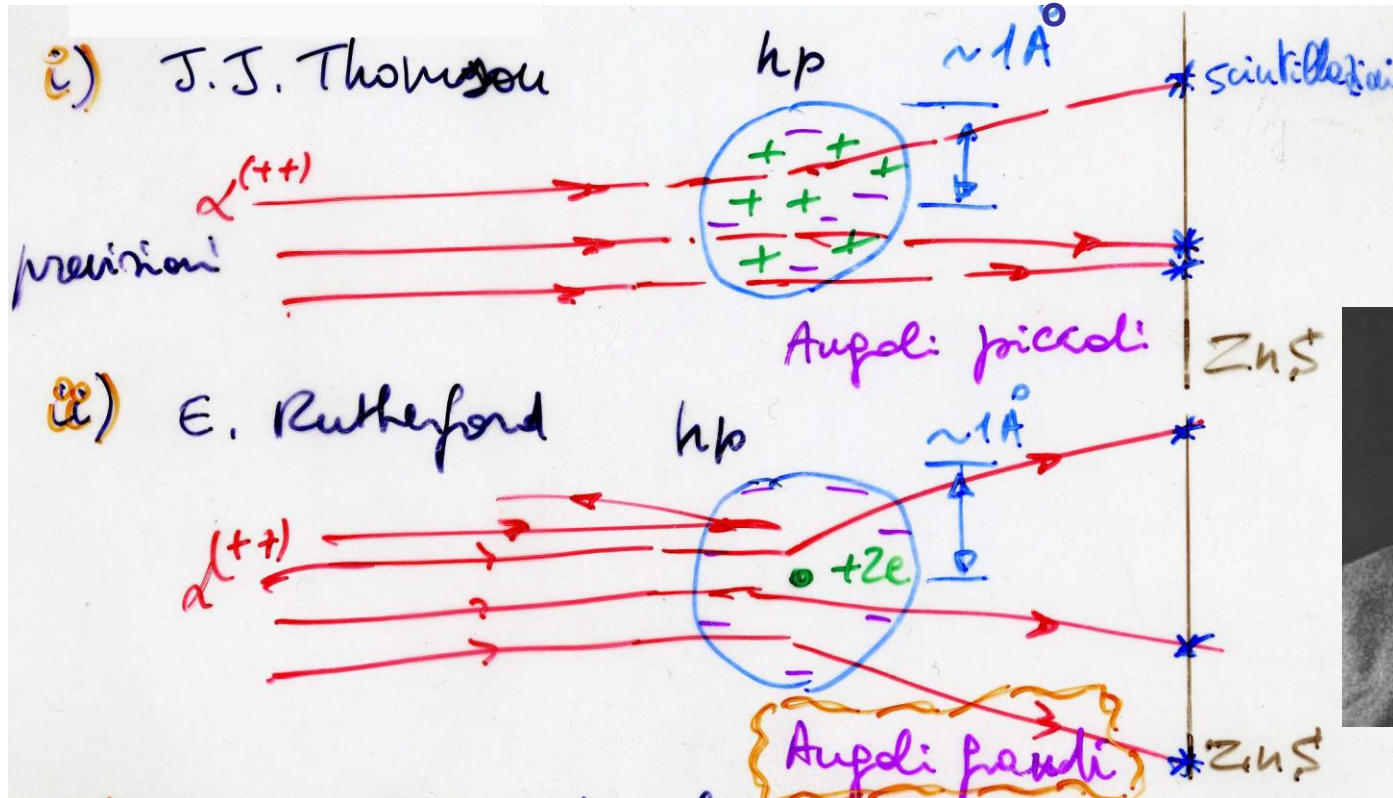 i) J.J. Thomson hp ~1Å scintillazioni
α(++)
+ + + + + + +
previsioni
Angoli piccoli
ZnS
ii) E. Rutherford hp ~1Å
α(++)
+Ze
Angoli grandi
ZnS